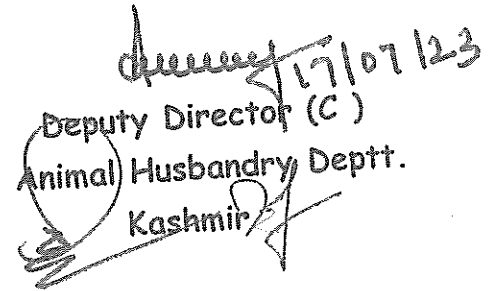 17/07/23
Deputy Director (C )
Animal Husbandry Deptt.
Kashmir